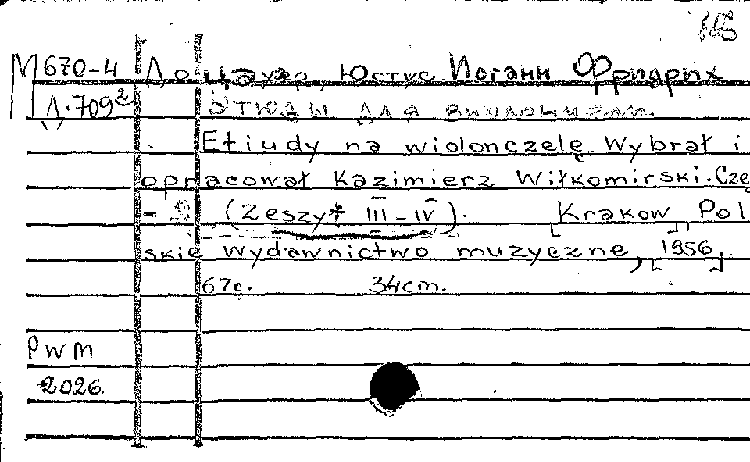 115
М 670-4 Доцауэр, Юстус Иоганн Фридрих
Д.709² Этюды для виолончели.
Etiudy na wiolonczelę Wybrał i
opracował Kazimierz Wiłkomirski. Czę
(Zeszyt III-IV). [Krakow] Pol
skie wydawnictwo muzyczne, [1956]
67с. 34cm.
PWM
2026.